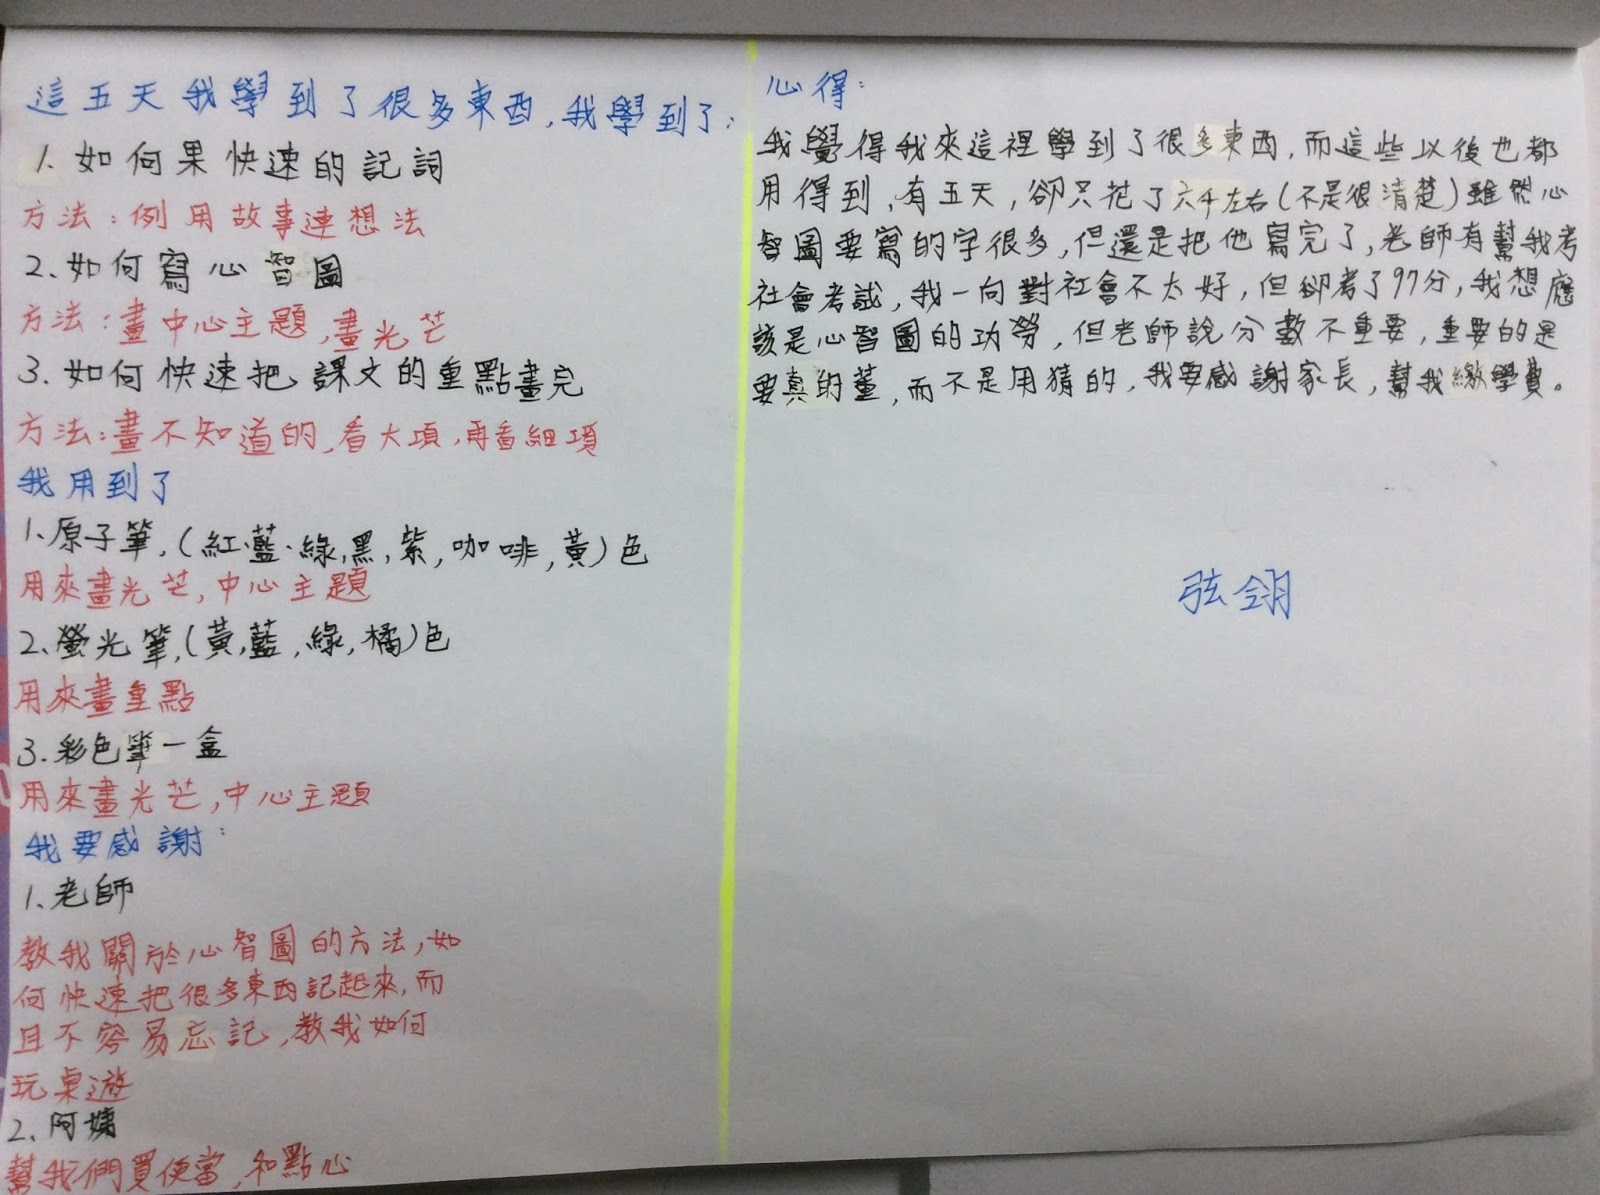 這五天我學到了很多東西,我學到了:
1.如何果快速的記詞
方法:例用故事連想法
2.如何寫心智圖
方法:畫中心主題,畫光芒
3.如何快速把課文的重點畫完
方法:畫不知道的,看大項,再看細項
我用到了
1.原子筆,(紅.藍.綠,黑,紫,咖啡,黃)色
用來畫光芒,中心主題
2.螢光筆,(黃,藍,綠,橘)色
用來畫重點
3.彩色筆一盒
用來畫光芒,中心主題
我要感謝:
1.老師
教我關於心智圖的方法,如
何快速把很多東西記起來,而
且不容易忘記,教我如何
玩桌遊
2.阿姨
幫我們買便當,和點心
心得:
我覺得我來這裡學到了很多東西,而這些以後也都
用得到,有五天,卻只花了六千左右(不是很清楚)雖然心
智圖要寫的字很多,但還是把他寫完了,老師有幫我考
社會考試,我一向對社會不太好,但卻考了97分,我想應
該是心智圖的功勞,但老師說分數不重要,重要的是
要真的董,而不是用猜的,我要感謝家長,幫我繳學費。
弦翎